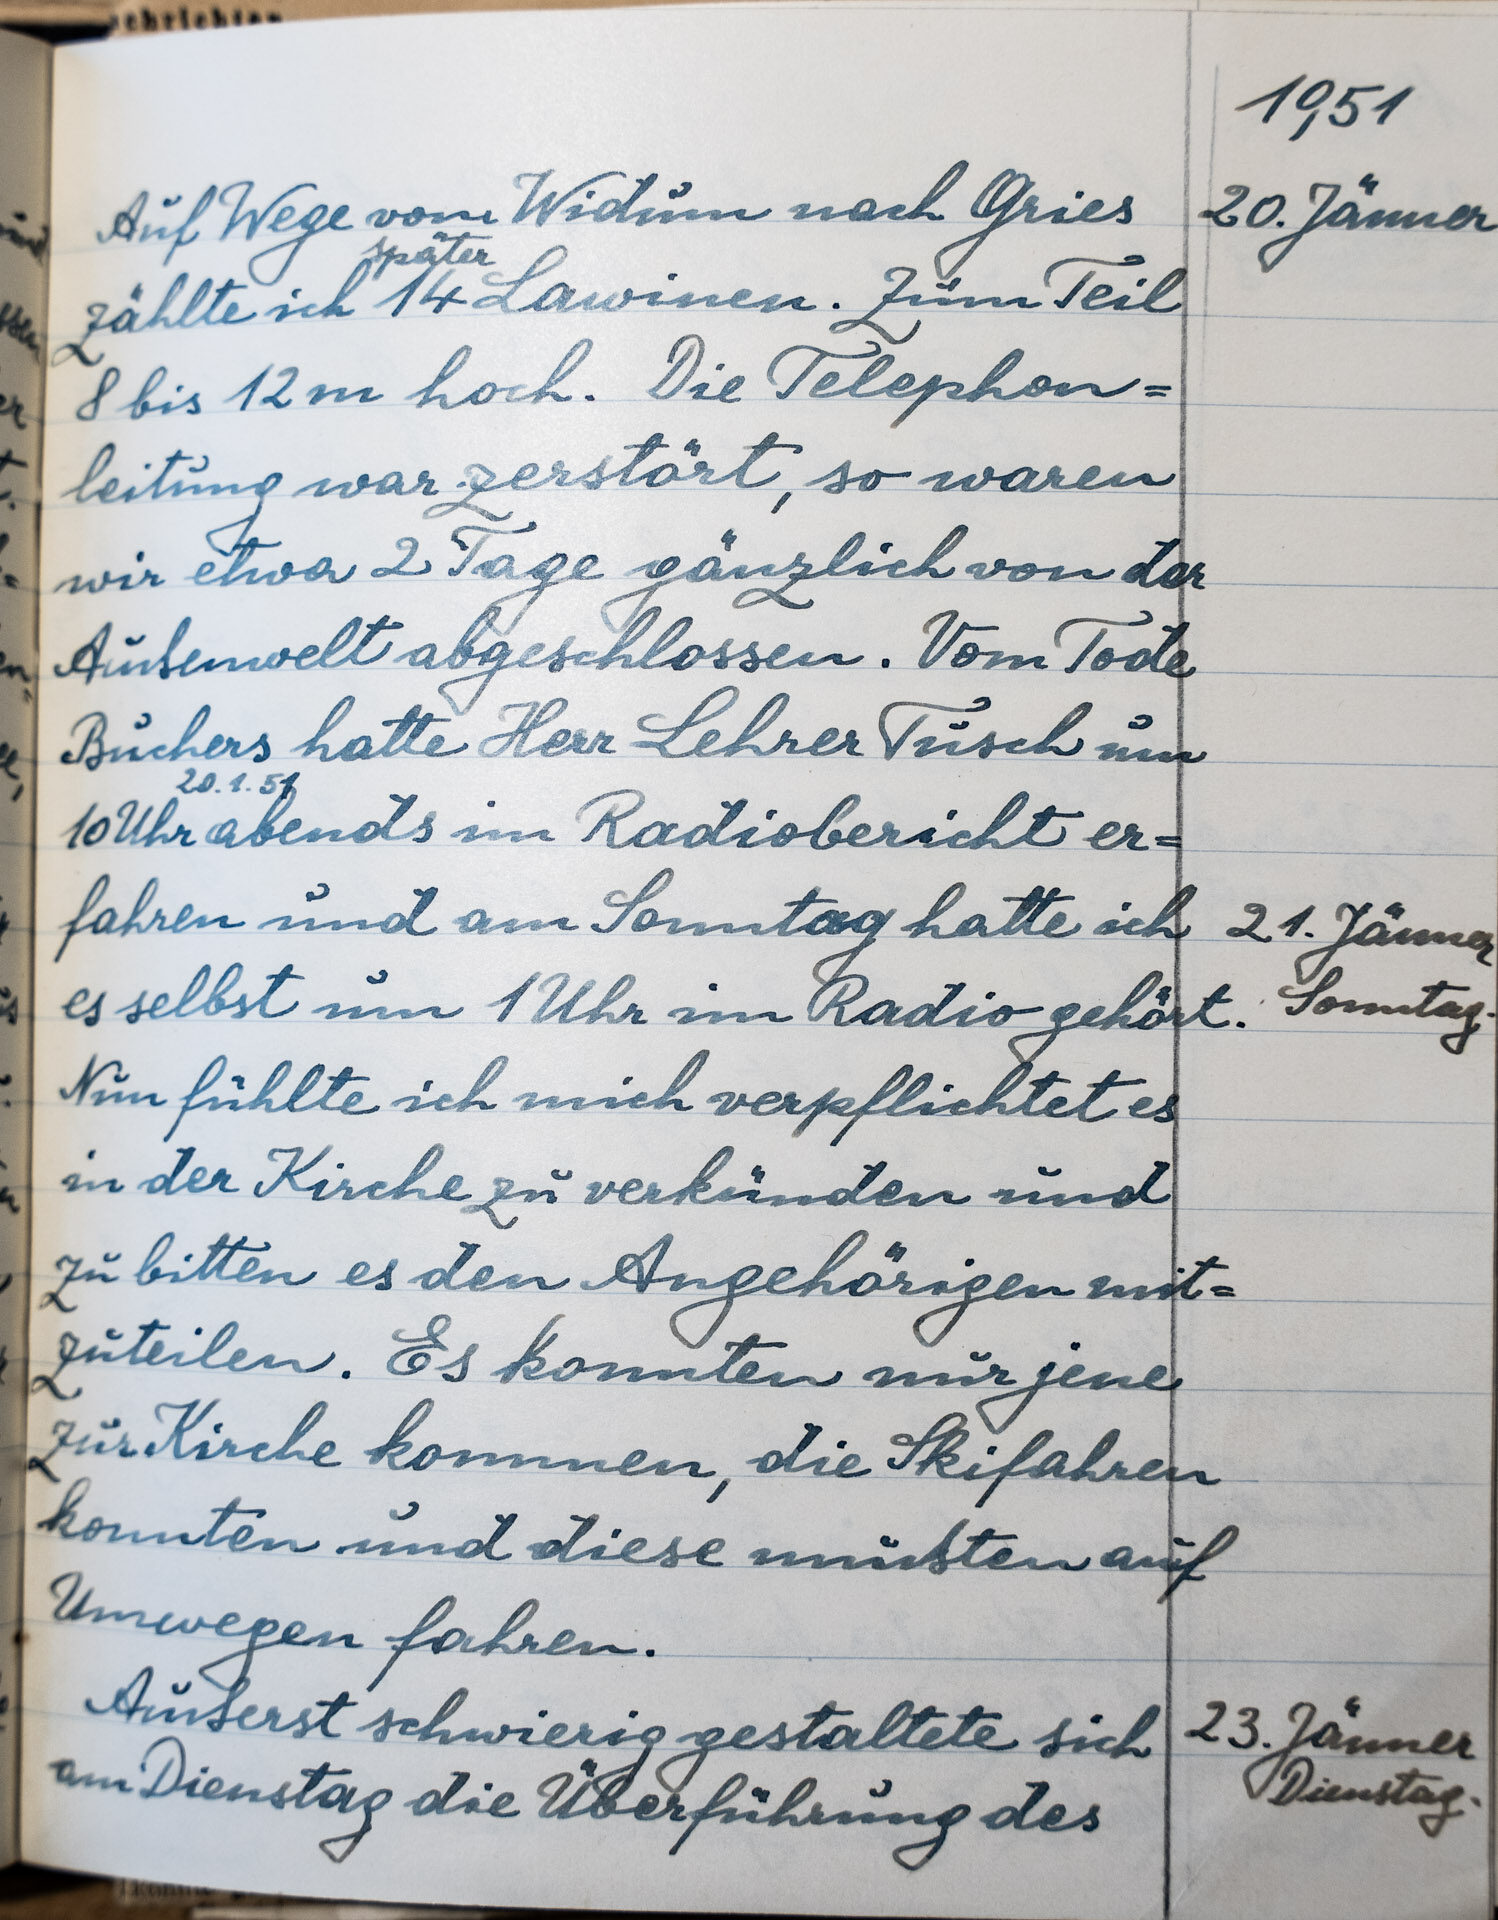 1951
Auf Wege vom Widum nach Gries 20. Jänner
später
zählte ich 14 Lawinen. Zum Teil
8 bis 12 m hoch. Die Telephon=
leitung war zerstört, so waren
wir etwa 2 Tage gänzlich von der
Außenwelt abgeschlossen. Vom Tode
Buchers hatte Herr Lehrer Tusch um
20.1.51
10 Uhr abends im Radiobericht er=
fahren und am Sonntag hatte ich 21. Jänner
es selbst um 1 Uhr im Radio gehört. Sonntag.
Nun fühlte ich mich verpflichtet es
in der Kirche zu verkünden und
zu bitten es den Angehörigen mit=
zuteilen. Es konnten nur jene
zur Kirche kommen, die Skifahren
konnten und diese mußten auf
Umwegen fahren.
Äußerst schwierig gestaltete sich 23. Jänner
am Dienstag die Überführung des Dienstag.